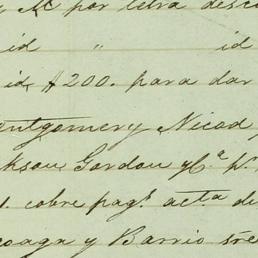 y M por letra desc
id " id
id $200. para dar
ontgomery Nicod y
kson Gordon y Ca p.
1. cobre pag.s acta de
zoaga y Barrio s/re